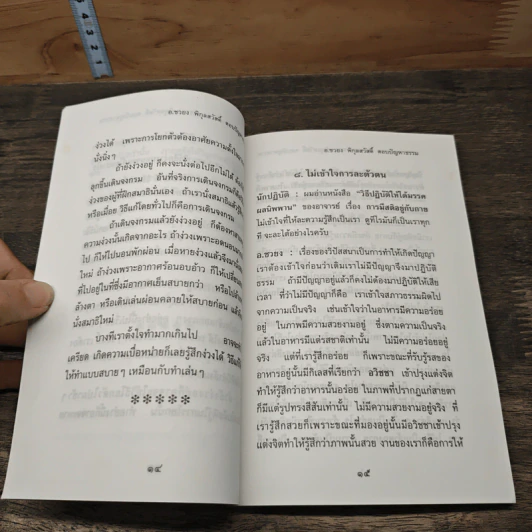 อ.ชวยง พิกุลสวัสดิ์ ตอบปัญหา
ง่วงได้ เพราะการโยกตัวต้องอาศัยความตั้งใจ
นั่งนิ่งๆ
ถ้ายังง่วงอยู่ ก็คงจะนั่งต่อไปอีกไม่ได้
ลุกขึ้นเดินจงกรม อันที่จริงการเดินจงกรมก็
ง่วงของผู้ที่ฝึกสมาธินั่นเอง ถ้าเรานั่งสมาธิแล้วรู้สึก
หรือเมื่อย วิธีแก้โดยทั่วไปก็คือการเดินจงกรม
ถ้าเดินจงกรมแล้วยังง่วงอยู่ ก็ต้อง
ความง่วงนั้นเกิดจากอะไร ถ้าง่วงเพราะอดนอน
ไป ก็ให้ไปนอนพักผ่อน เมื่อหายง่วงแล้วจึง
ใหม่ ถ้าง่วงเพราะอากาศร้อนอบอ้าว ก็ให้
ที่ไปอยู่ในที่ซึ่งมีอากาศเย็นสบายกว่า หรือไป
ล้างตา หรือเดินเล่นผ่อนคลายให้สบายก่อน แล้ว
นั่งสมาธิใหม่
บางทีเราตั้งใจทำมากเกินไป อาจจะ
เครียด เกิดความเบื่อหน่ายก็เลยรู้สึกง่วงได้ วิธี
ให้ทำแบบสบายๆ เหมือนกับทำเล่นๆ
*****
๑๔
อ.ชวยง พิกุลสวัสดิ์ ตอบปัญหาธรรม
๘. ไม่เข้าใจการละตัวตน
นักปฏิบัติ : ผมอ่านหนังสือ "วิธีปฏิบัติให้ได้มรรค
ผลนิพพาน" ของอาจารย์ เรื่อง การมีสติอยู่กับกาย
ไม่เข้าใจที่ให้ละความรู้สึกเป็นเรา ดูที่ไรมันก็เป็นเราทุก
ที จะละได้อย่างไรครับ
อ.ชวยง : เรื่องของวิปัสสนาเป็นการทำให้เกิดปัญญา
เราต้องเข้าใจก่อนว่าเดิมเราไม่มีปัญญาจึงมาปฏิบัติ
ธรรม ถ้ามีปัญญาอยู่แล้วก็คงไม่ต้องมาปฏิบัติให้เสีย
เวลา ที่ว่าไม่มีปัญญาก็คือ เราเข้าใจสภาวธรรมผิดไป
จากความเป็นจริง เช่นเข้าใจว่าในอาหารมีความอร่อย
อยู่ ในภาพมีความสวยงามอยู่ ซึ่งตามความเป็นจริง
แล้วในอาหารมีแต่รสชาติเท่านั้น ไม่มีความอร่อยอยู่
จริง แต่ที่เรารู้สึกอร่อย ก็เพราะขณะที่รับรู้รสของ
อาหารอยู่นั้นมีกิเลสที่เรียกว่า อวิชชา เข้าปรุงแต่งจิต
ทำให้รู้สึกว่าอาหารนั้นอร่อย ในภาพที่ปรากฏแก่สายตา
ก็มีแต่รูปทรงสีสันเท่านั้น ไม่มีความสวยงามอยู่จริง ที่
เรารู้สึกสวยก็เพราะขณะที่มองอยู่นั้นมีอวิชชาเข้าปรุง
แต่งจิตทำให้รู้สึกว่าภาพนั้นสวย งานของเราก็คือการให้
๑๕